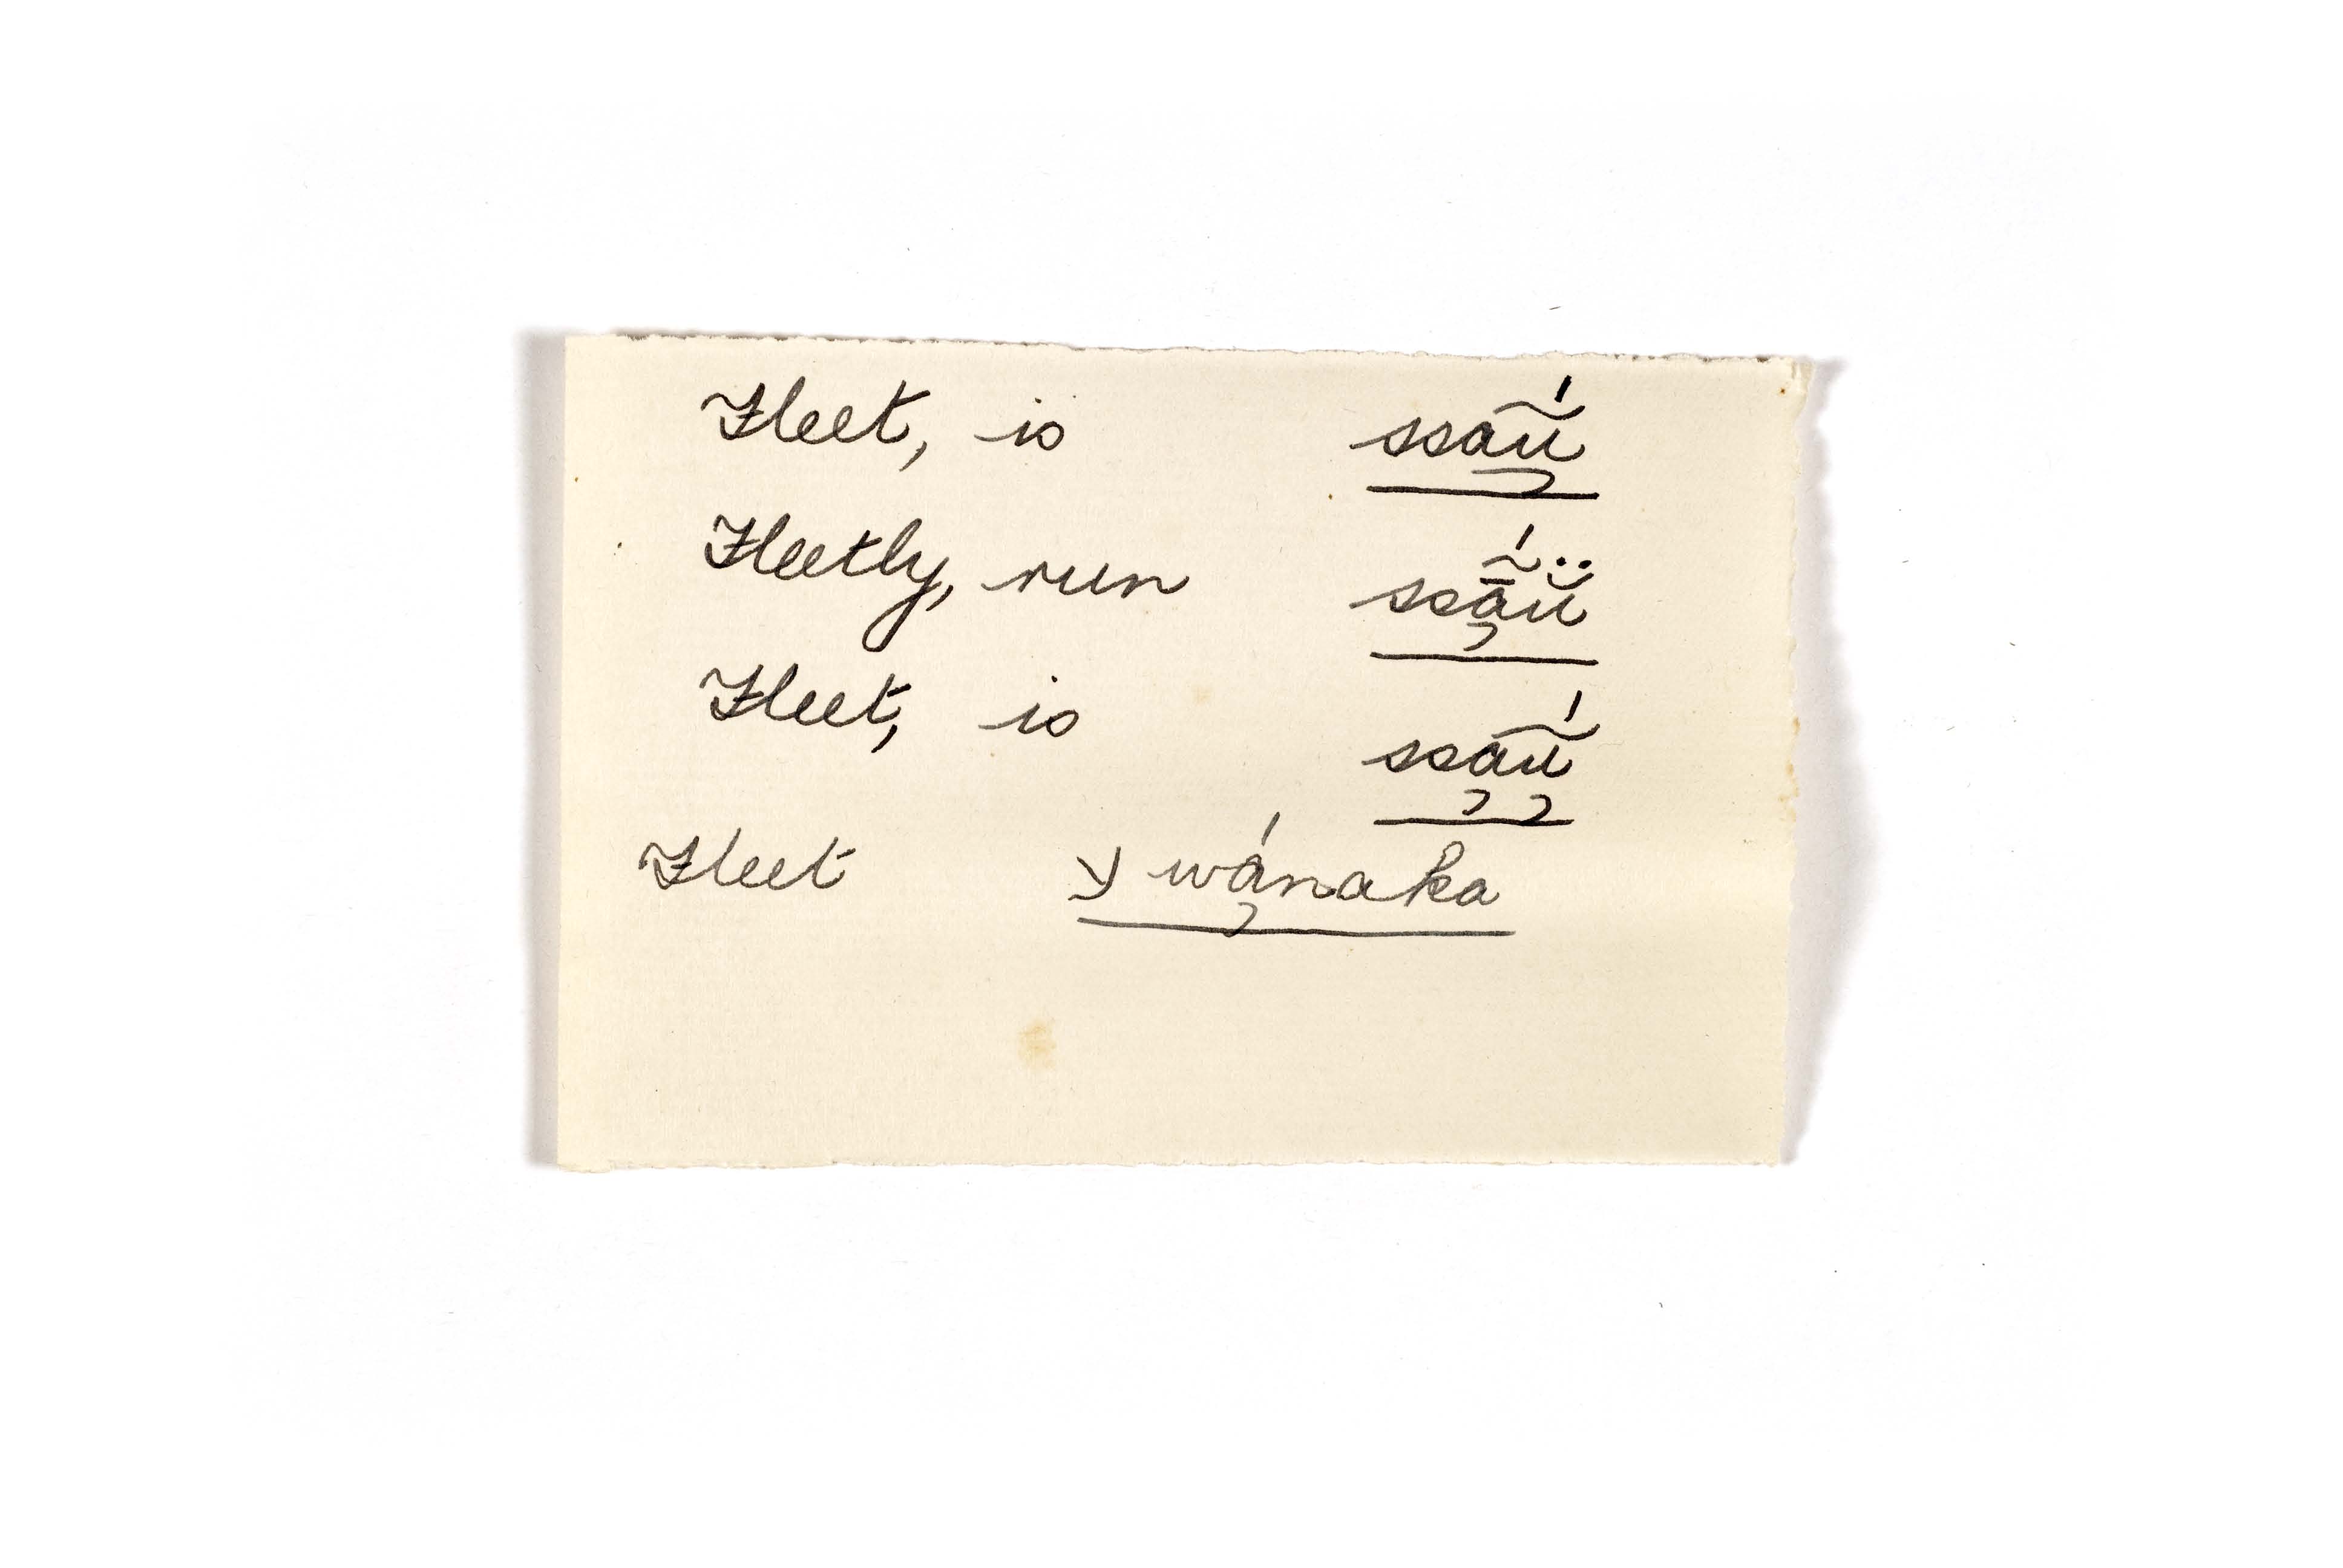 Fleet, is ssa͠ú̜
Fleetly, run ssā̜̃́ṳ̈
Fleet, is ssa̜͠ú̜
Fleet wá̜naka